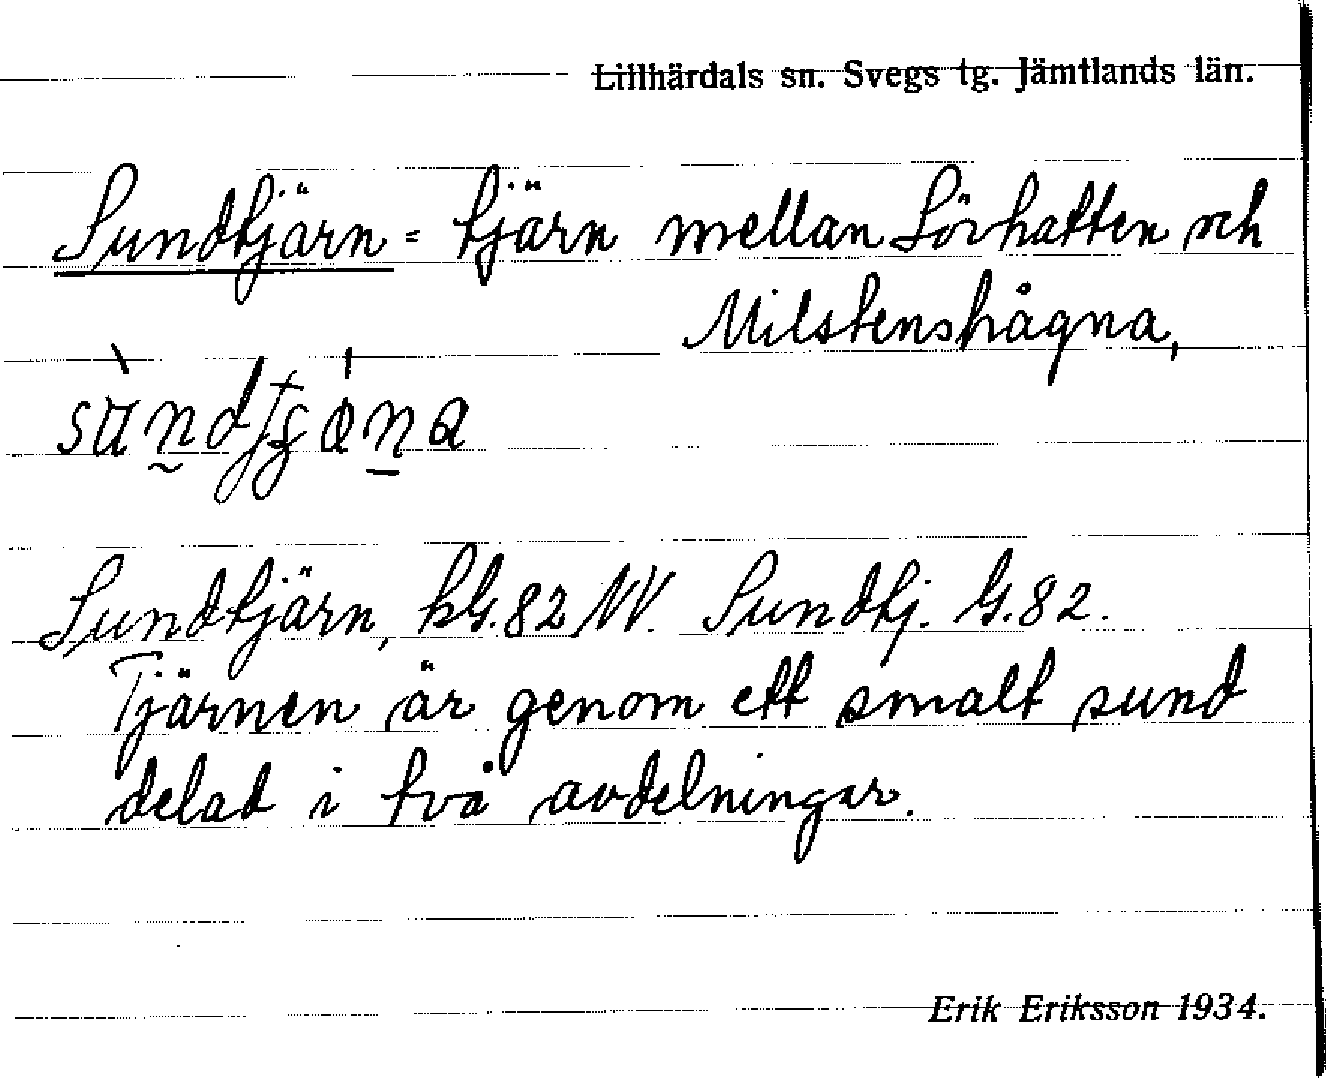 Lillhärdals sn. Svegs tg. Jämtlands län.
Sundtjärn = tjärn mellan Sörhatten och
Milstenshågna,
Sundtjärn, kG.82 NV. Sundtj. G.82.
Tjärnen är genom ett smalt sund
delad i två avdelningar.
Erik Eriksson 1934.